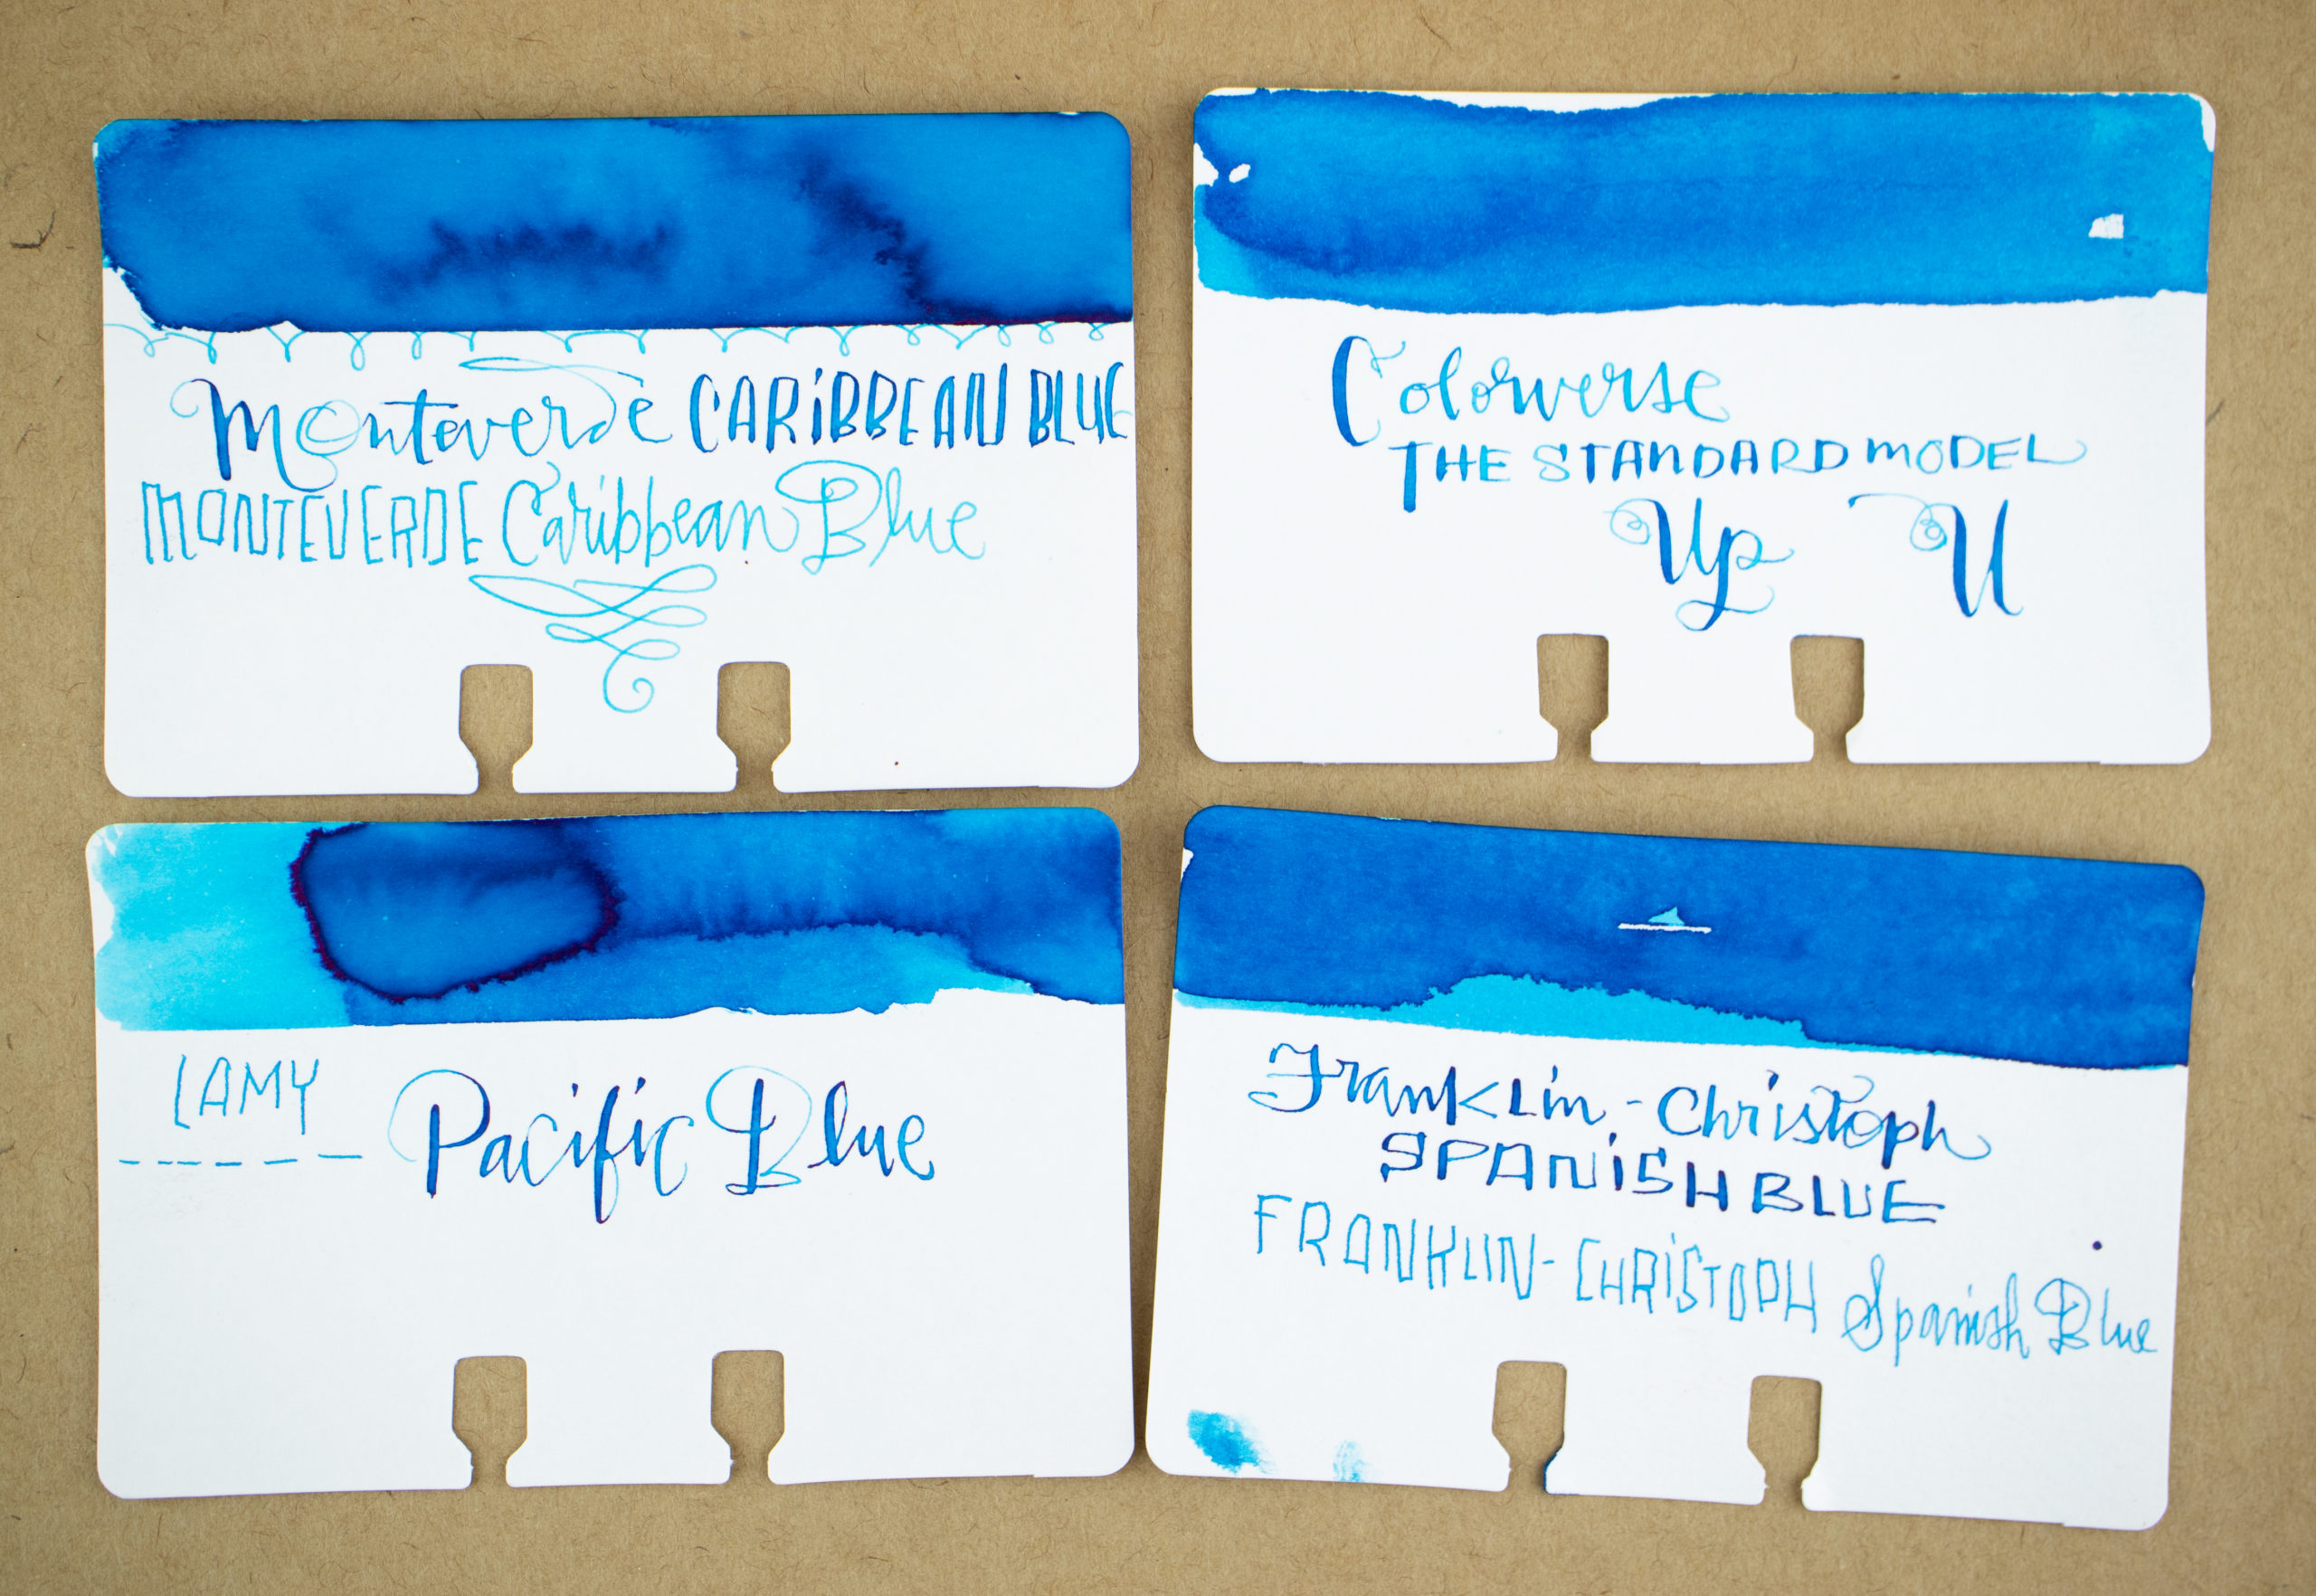 Monteverde CARiBBEAN BLUE
MONTEVERDE Caribbean Blue
Colorverse
THE STANDARD MODEL
Up U
LAMY Pacific Blue
Franklin-Christoph
SPANiSH BLUE
FRANKLIN-CHRiSTOPH Spanish Blue